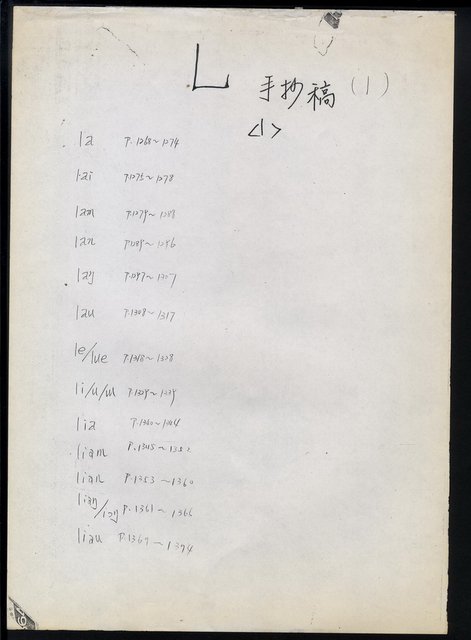 L 手抄稿 (1)
<1>
la P.1268~1274
lai P.1275~1278
lam P.1279~1288
lan P.1289~1296
laŋ P.1297~1307
lau P.1308~1317
le/lue P.1318~1328
li/u/ɯ P.1329~1339
lia P.1340~1344
liam P.1345~1352
lian P.1353~1360
liaŋ/iɔŋ P.1361~1366
liau P.1367~1374